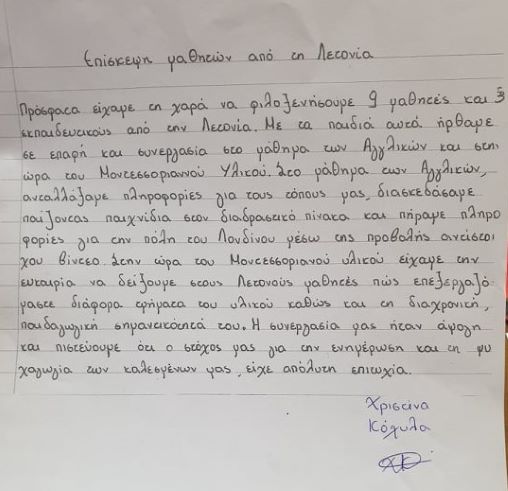 Επίσκεψη μαθητών από τη Λετονία
Πρόσφατα είχαμε τη χαρά να φιλοξενήσουμε 9 μαθητές και 3
εκπαιδευτικούς από την Λετονία. Με τα παιδιά αυτά ήρθαμε
σε επαφή και συνεργασία στο μάθημα των Αγγλικών και στην
ώρα του Μοντεσσοριανού Υλικού. Στο μάθημα των Αγγλικών,
ανταλλάξαμε πληροφορίες για τους τόπους μας, διασκεδάσαμε
παίζοντας παιχνίδια στον διαδραστικό πίνακα και πήραμε πληρο
φορίες για την πόλη του Λονδίνου μέσω της προβολής αντίστοι
χου βίντεο. Στην ώρα του Μοντεσσοριανού υλικού είχαμε την
ευκαιρία να δείξουμε στους Λετονούς μαθητές πώς επεξεργαζό
μαστε διάφορα τμήματα του υλικού καθώς και τη διαχρονική,
παιδαγωγική σημαντικότητά του. Η συνεργασία μας ήταν άψογη
και πιστεύουμε ότι ο στόχος μας για την ενημέρωση και τη ψυ
χαγωγία των καλεσμένων μας, είχε απόλυτη επιτυχία.
Χριστίνα